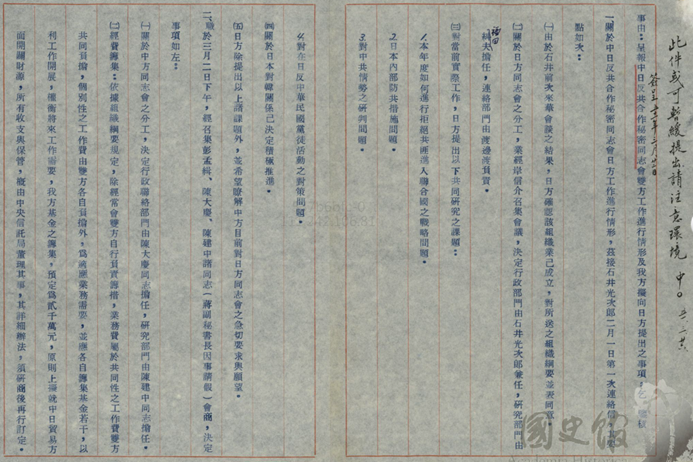 此件或可暫緩提出請注意環境 中〇
事由：呈報中日反共合作秘密同志會雙方工作進行情形及我方擬向日方提出之事項
一、關於中日反共合作秘密同志會日方工作進行情形，茲接石井光次郎二月一日第一次連絡
點如次：
㈠由於石井前次來華會談之結果，日方確認該組織業已成立，對所送之組織綱要並表同意。
㈡關於日方同志會之分工，業經岸信介召集會議，決定行政部門由石井光次郎兼任，研究部門由
糾夫擔任，連絡部門由渡邊渡負責。
㈢對當前實際工作，日方提出以下共同研究之課題：
1.本年度如何進行拒絕共匪進入聯合國之戰略問題。
2.日本內部防共措施問題。
3.對中共情勢之研判問題。
4.對在日反中華民國黨徒活動之對策問題。
㈣關於日本對韓關係已決定積極推進。
㈤日方除提出以上諸課題外，並希望瞭解中方目前對日方同志會之急切要求與願望。
二、職於三月二日下午，經召集鄭孟緝、陳大慶、陳建中諸同志（蔣副秘書長因事請假）會商，決定
事項如左：
㈠關於中方同志會之分工，決定行政聯絡部門由陳大慶同志擔任，研究部門由陳建中同志擔任。
㈡經費籌集：依據組織綱要規定，除經常會雙方自行負責籌措，業務費屬於共同性之工作費雙方
共同負擔，個別性之工作費由雙方各自負擔外，為適應業務需要，並應各自籌集基金若干，以
利工作開展，權衡將來工作需要，我方基金之籌集，預定為貳千萬元，原則上擬就中日貿易方
面開闢財源，所有收支與保管，概由中央信託局董理其事，其詳細辦法，須研商後再行訂定。
國史館